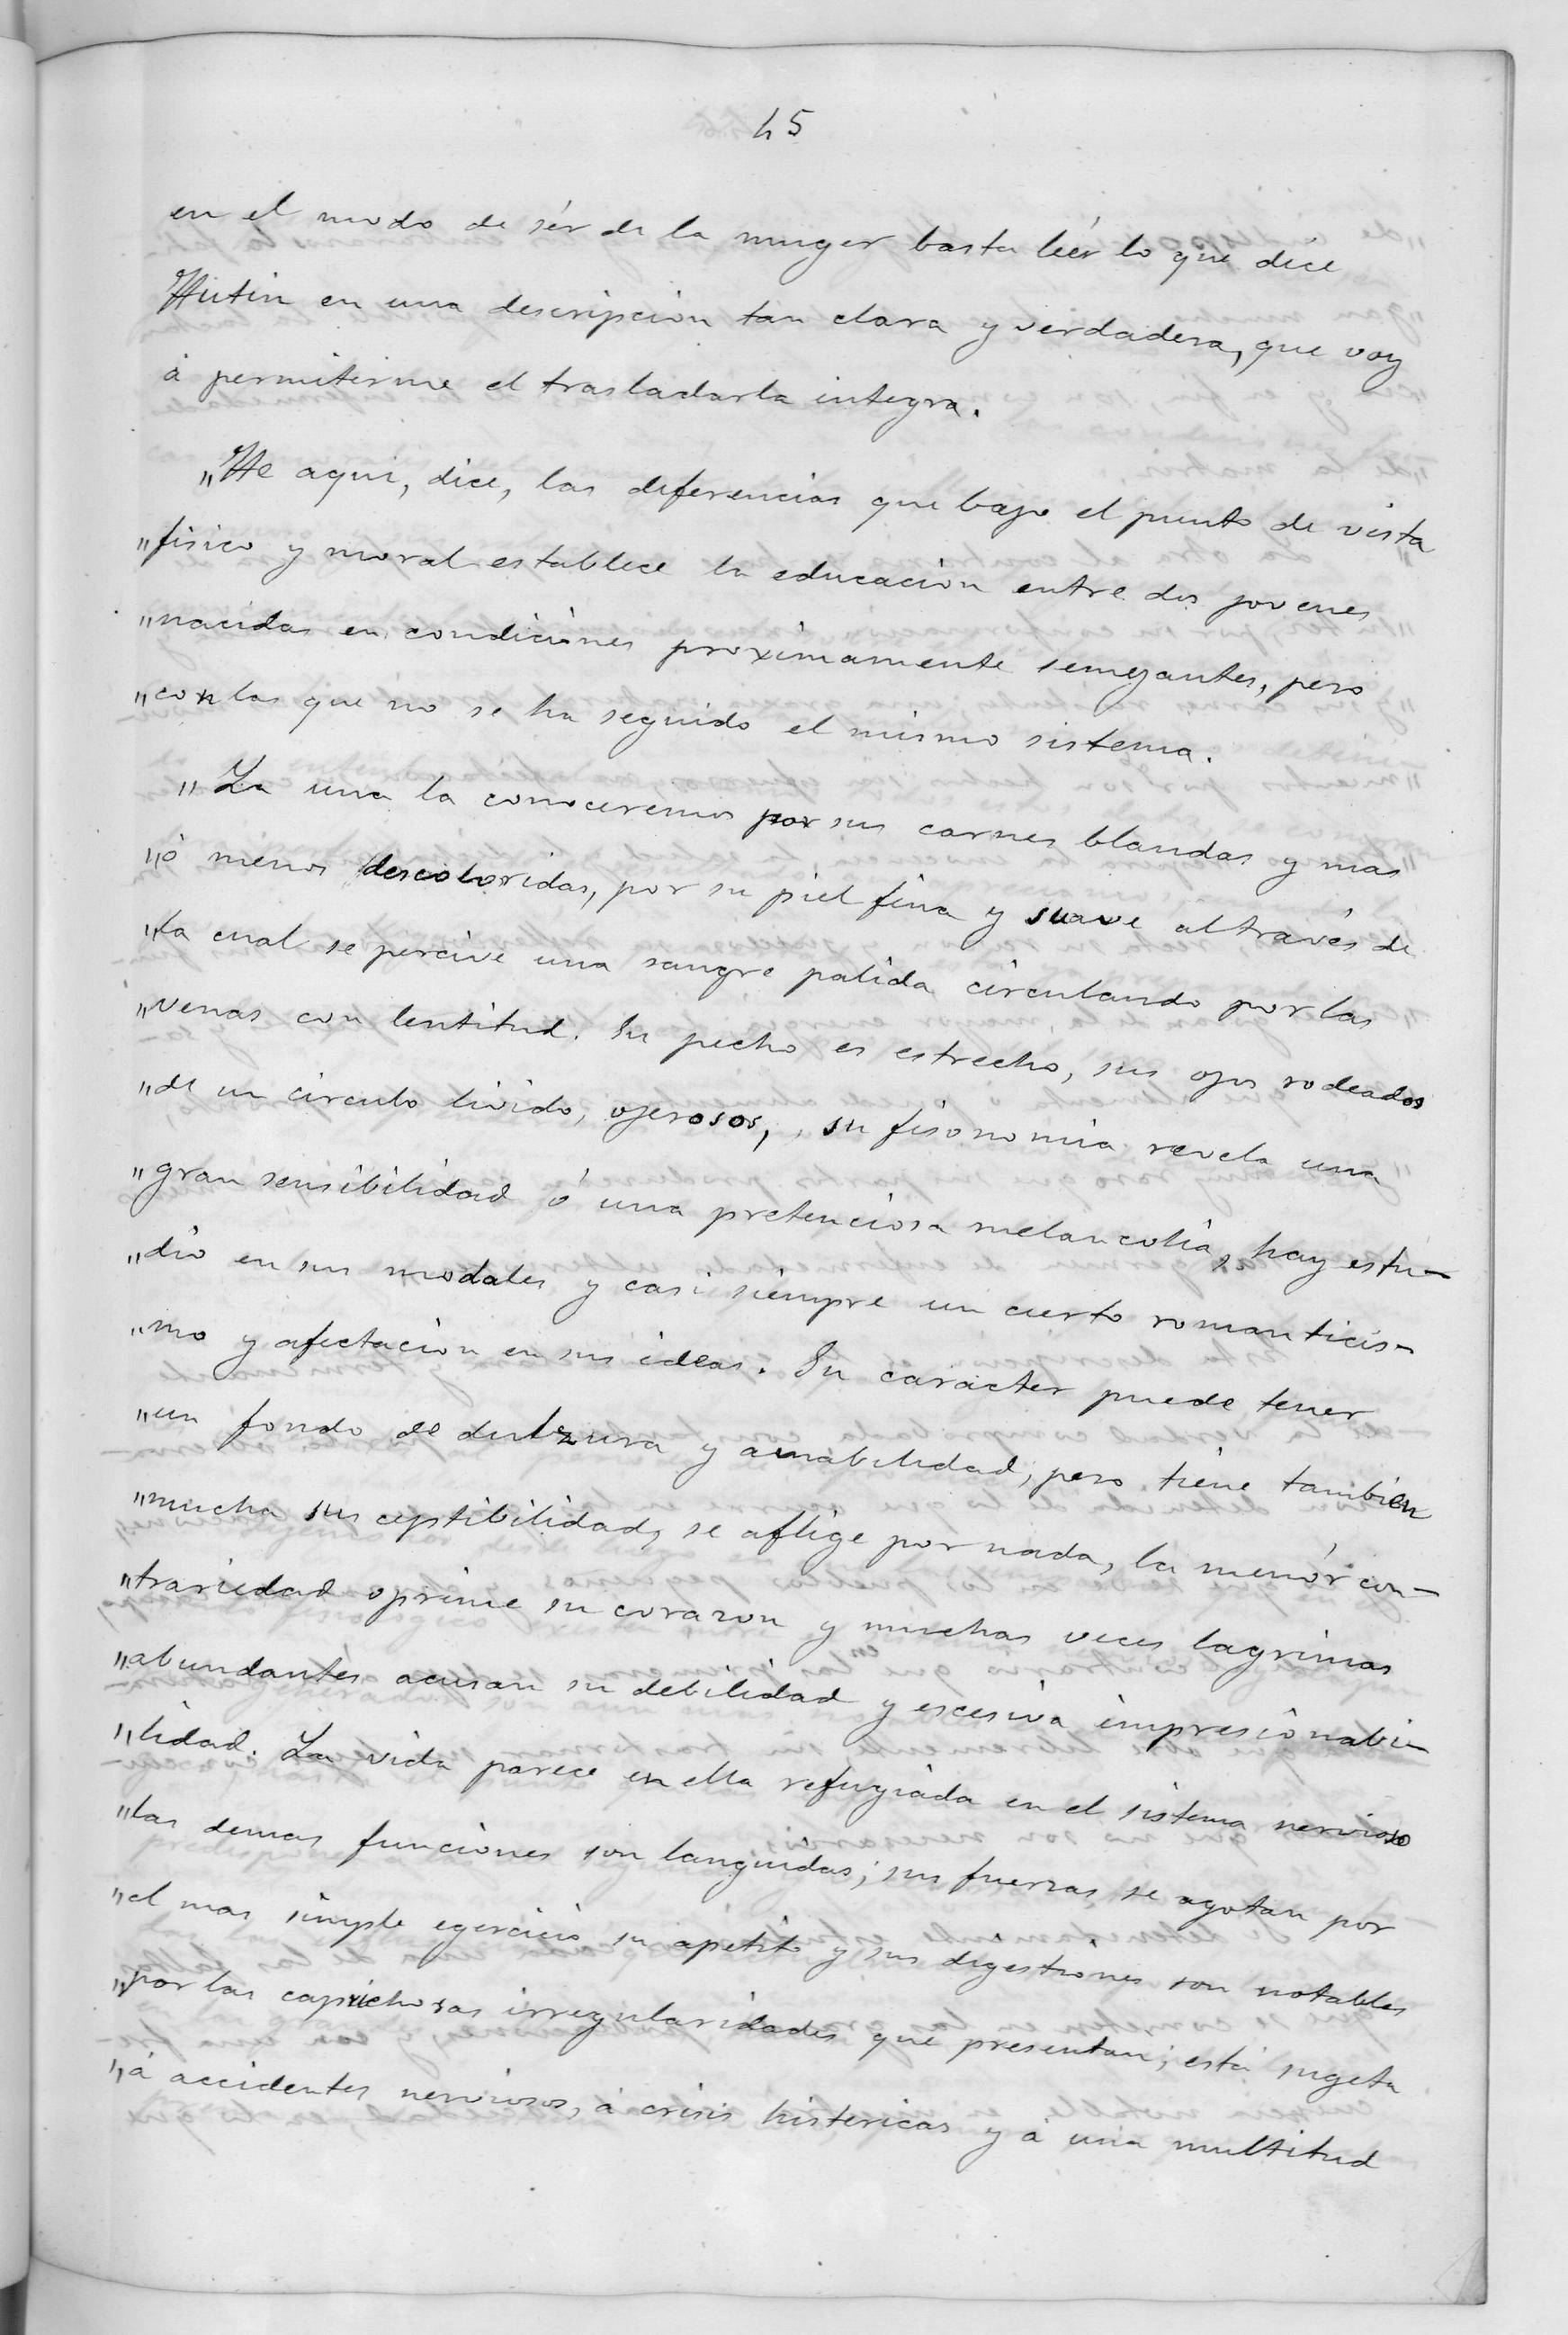 45
en el modo de sér de la muger basta léer lo que dice
Hutin en una descripcion tan clara y verdadera, que voy
á permitirme el trasladarla integra.
„He aqui, dice, las diferencias que bajo el punto de vista
„fisico y moral establece la educacion entre dos jovenes
„nacidas en condiciones proximamente semejantes, pero
„con las que no se ha seguido el mismo sistema.
„La una la conoceremos por sus carnes blandas y mas
„ó menos descoloridas, por su piel fina y suave al través de
„la cual se percive una sangre palida circulando por las
„venas con lentitud. Su pecho es estrecho, sus ojos rodeados
„de un circulo livido, ojerosos, su fisonomia revela una
„gran sensibilidad ó una pretenciosa melancolia, hay estu-
„dio en sus modales y casi siempre un cierto romanticis-
„mo y afectacion en sus ideas. Su caracter puede tener
„un fondo de dulzura y amabilidad, pero tiene tambien
„mucha susceptibilidad, se aflige por nada, la menór con-
„trariedad oprime su corazon y muchas veces lagrimas
„abundantes acusan su debilidad y escesiva impresionabi-
„lidad. La vida parece en ella refugiada en el sistema nervioso
„las demas funciones son languidas; sus fuerzas se agotan por
„el mas simple egercicio su apetito y sus digestiones son notables
„por las caprichosas irregularidades que presentan; está sugeta
„á accidentes nerviosos, á crisis histericas y á una multitud